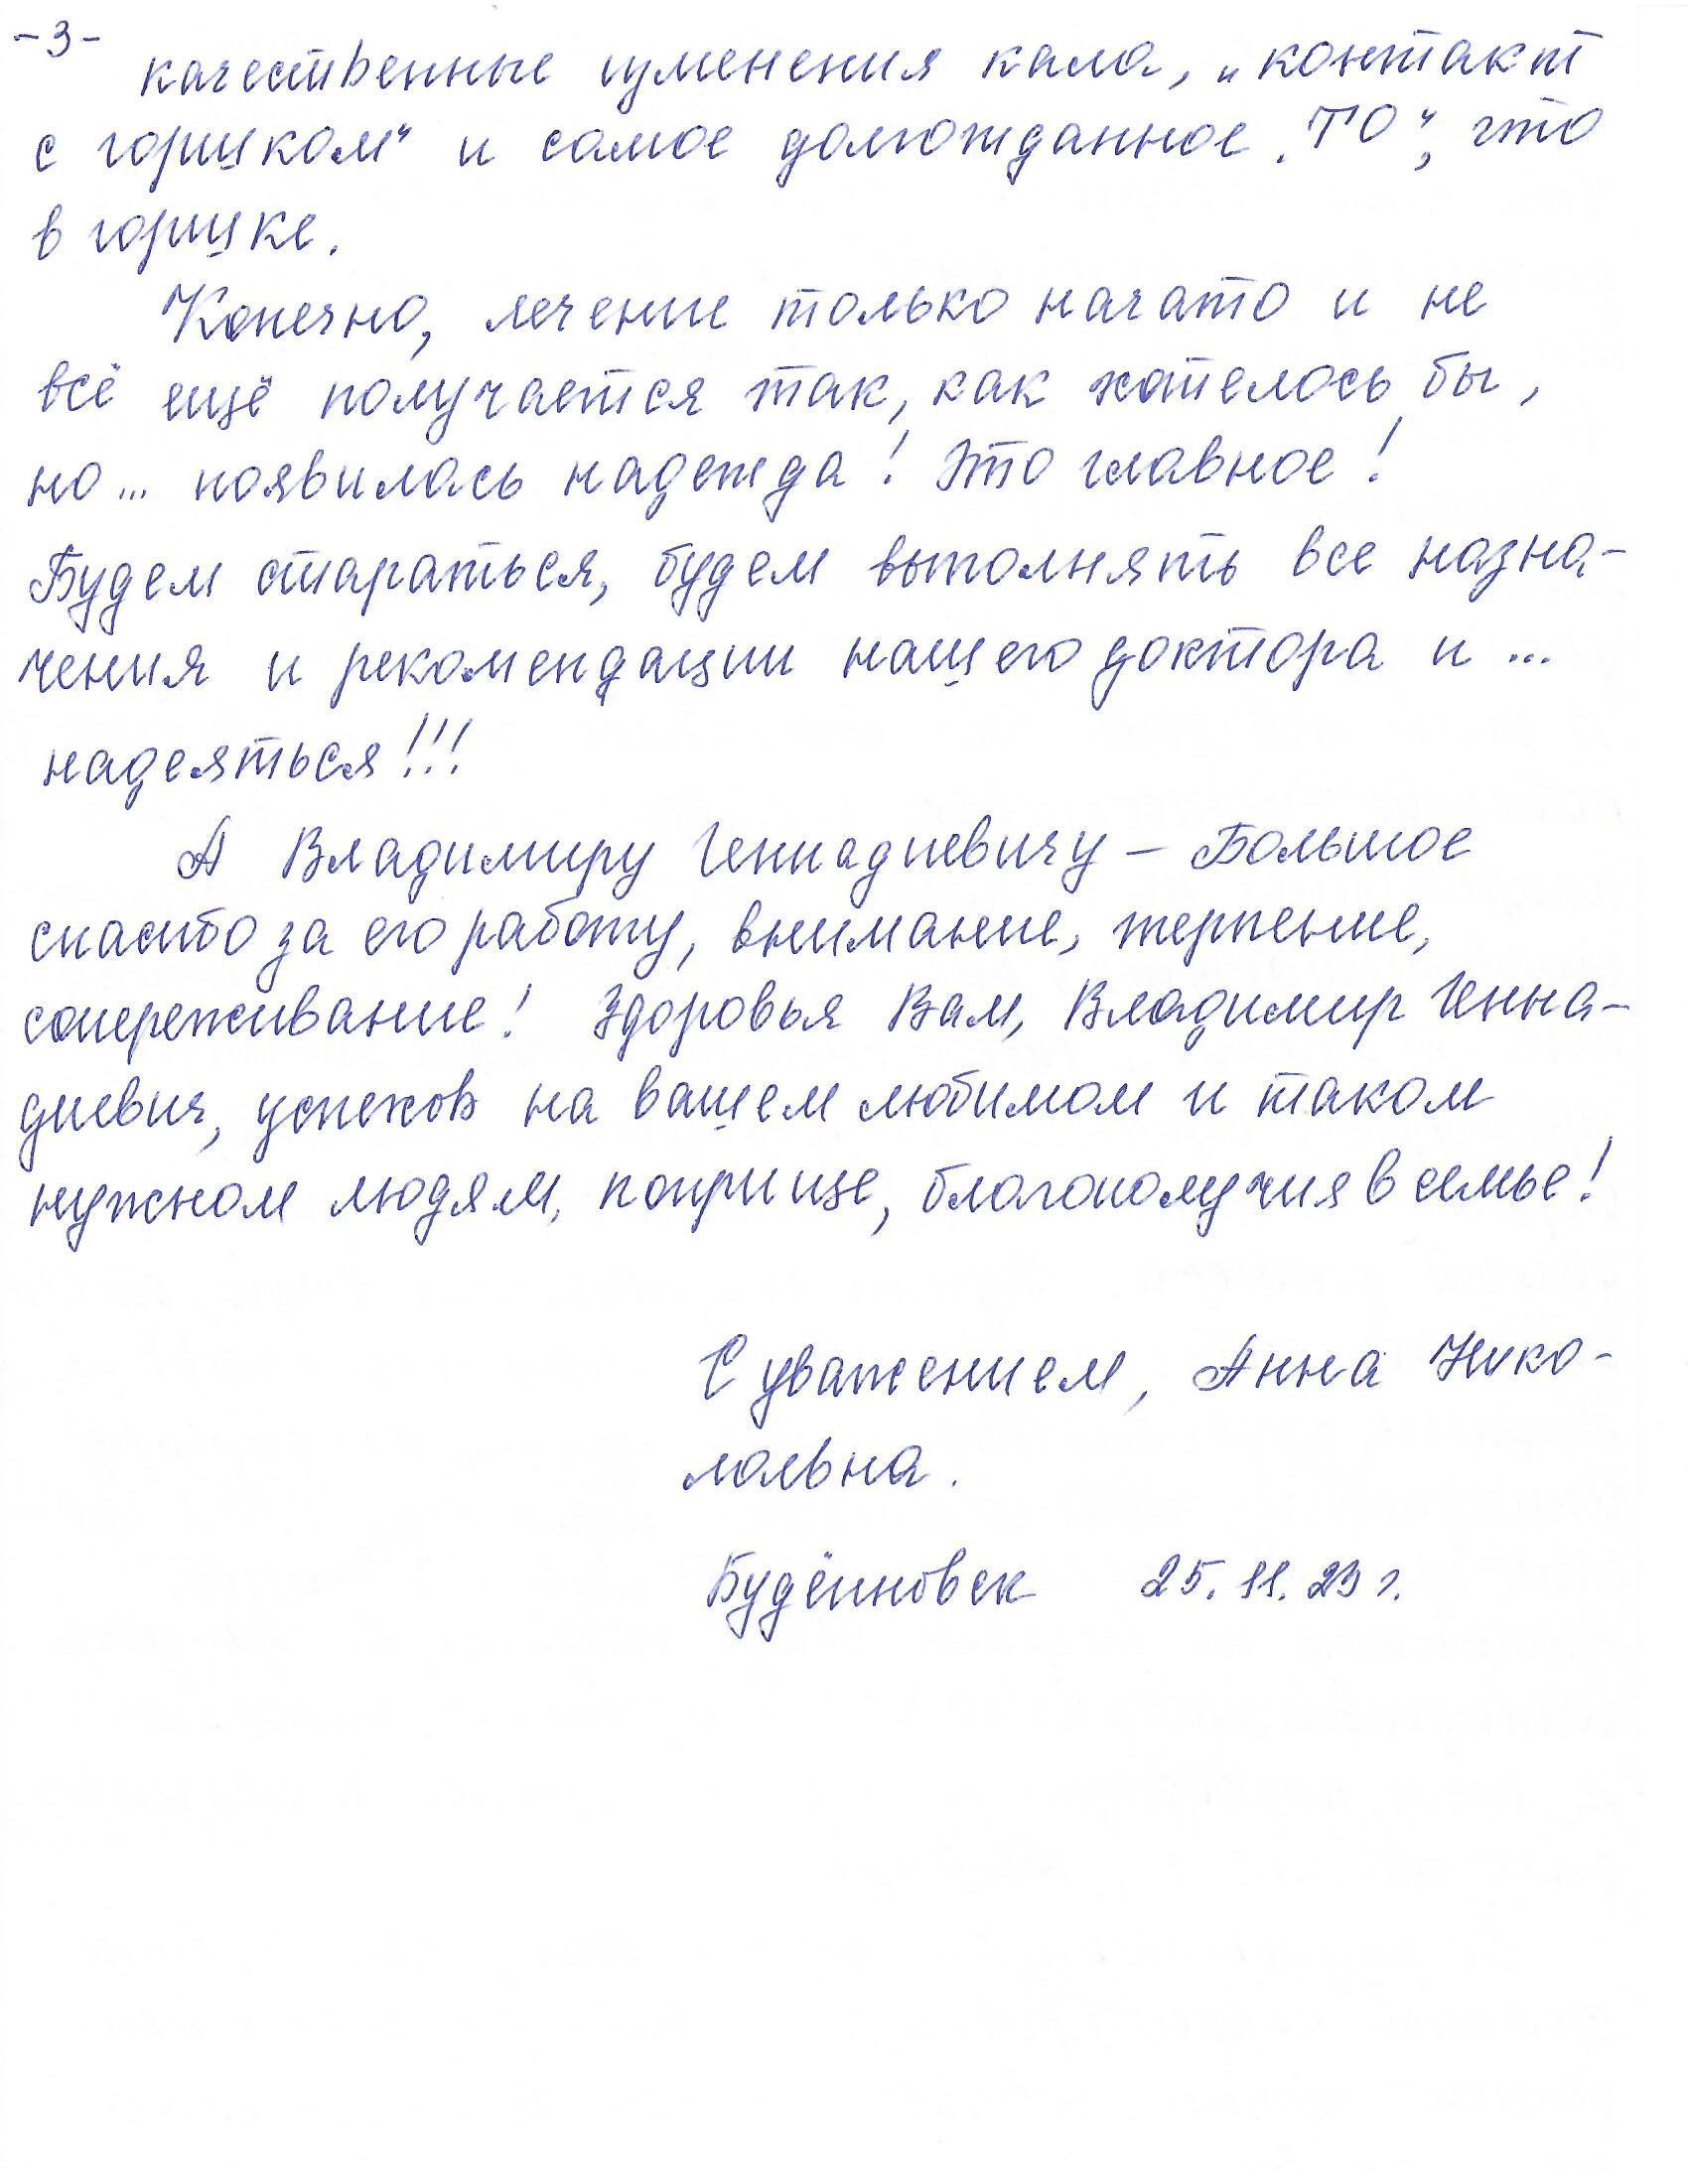 -3-
качественные изменения кала, „контакт
с горшком“ и самое долгожданное „ТО“, что
в горшке.
Конечно, лечение только начато и не
всё ещё получается так, как хотелось бы,
но... появилась надежда! Это главное!
Будем стараться, будем выполнять все назна-
чения и рекомендации нашего доктора и ...
надеяться!!!
А Владимиру Геннадиевичу – Большое
спасибо за его работу, внимание, терпение,
сопереживание! Здоровья Вам, Владимир Генна-
диевич, успехов на вашем любимом и таком
нужном людям, поприще, благополучия в семье!
С уважением, Анна Нико-
лаевна.
Будённовск 25.11.23 г.